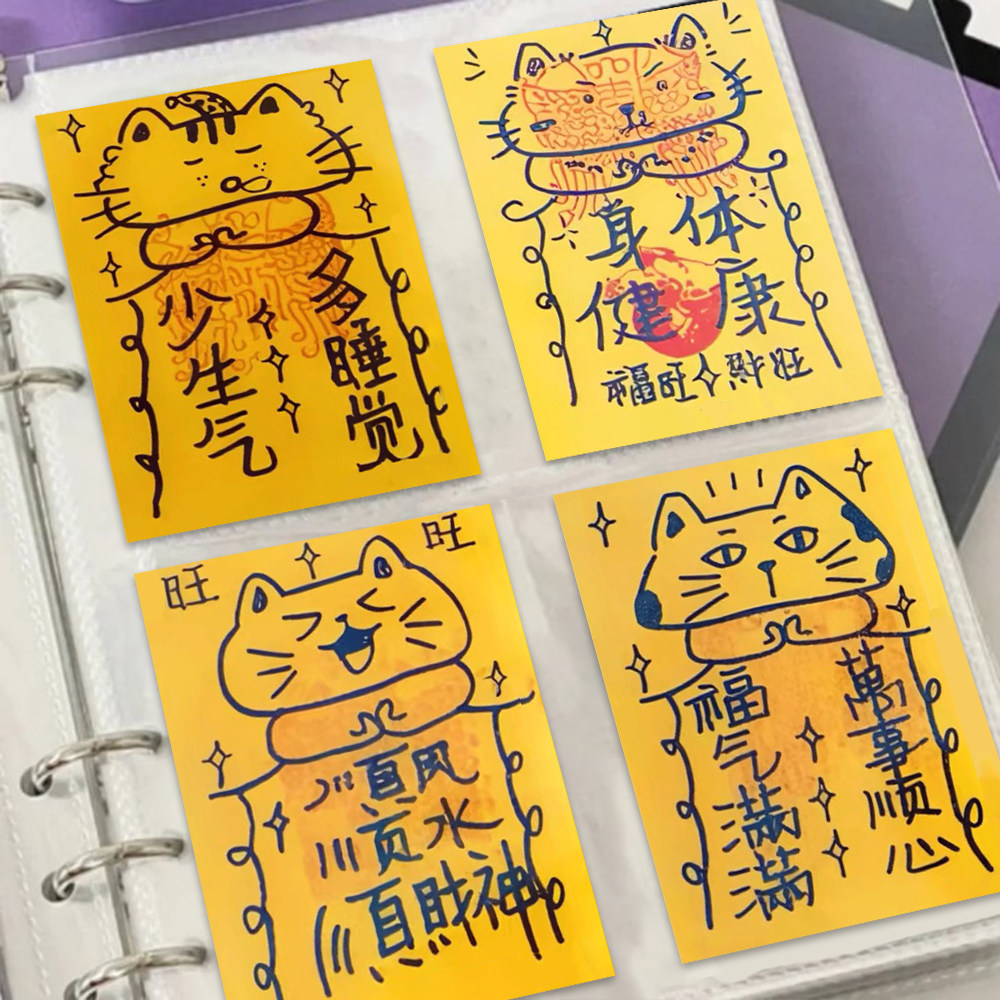 多睡觉
少生气
身体
健康
福旺 財旺
旺
旺
順风
顺水
順財神
萬事顺心
福气满满